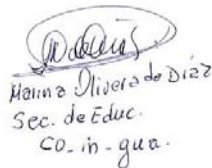 Marina Olivera de Díaz
Sec. de Educ.
Co_in_gua.